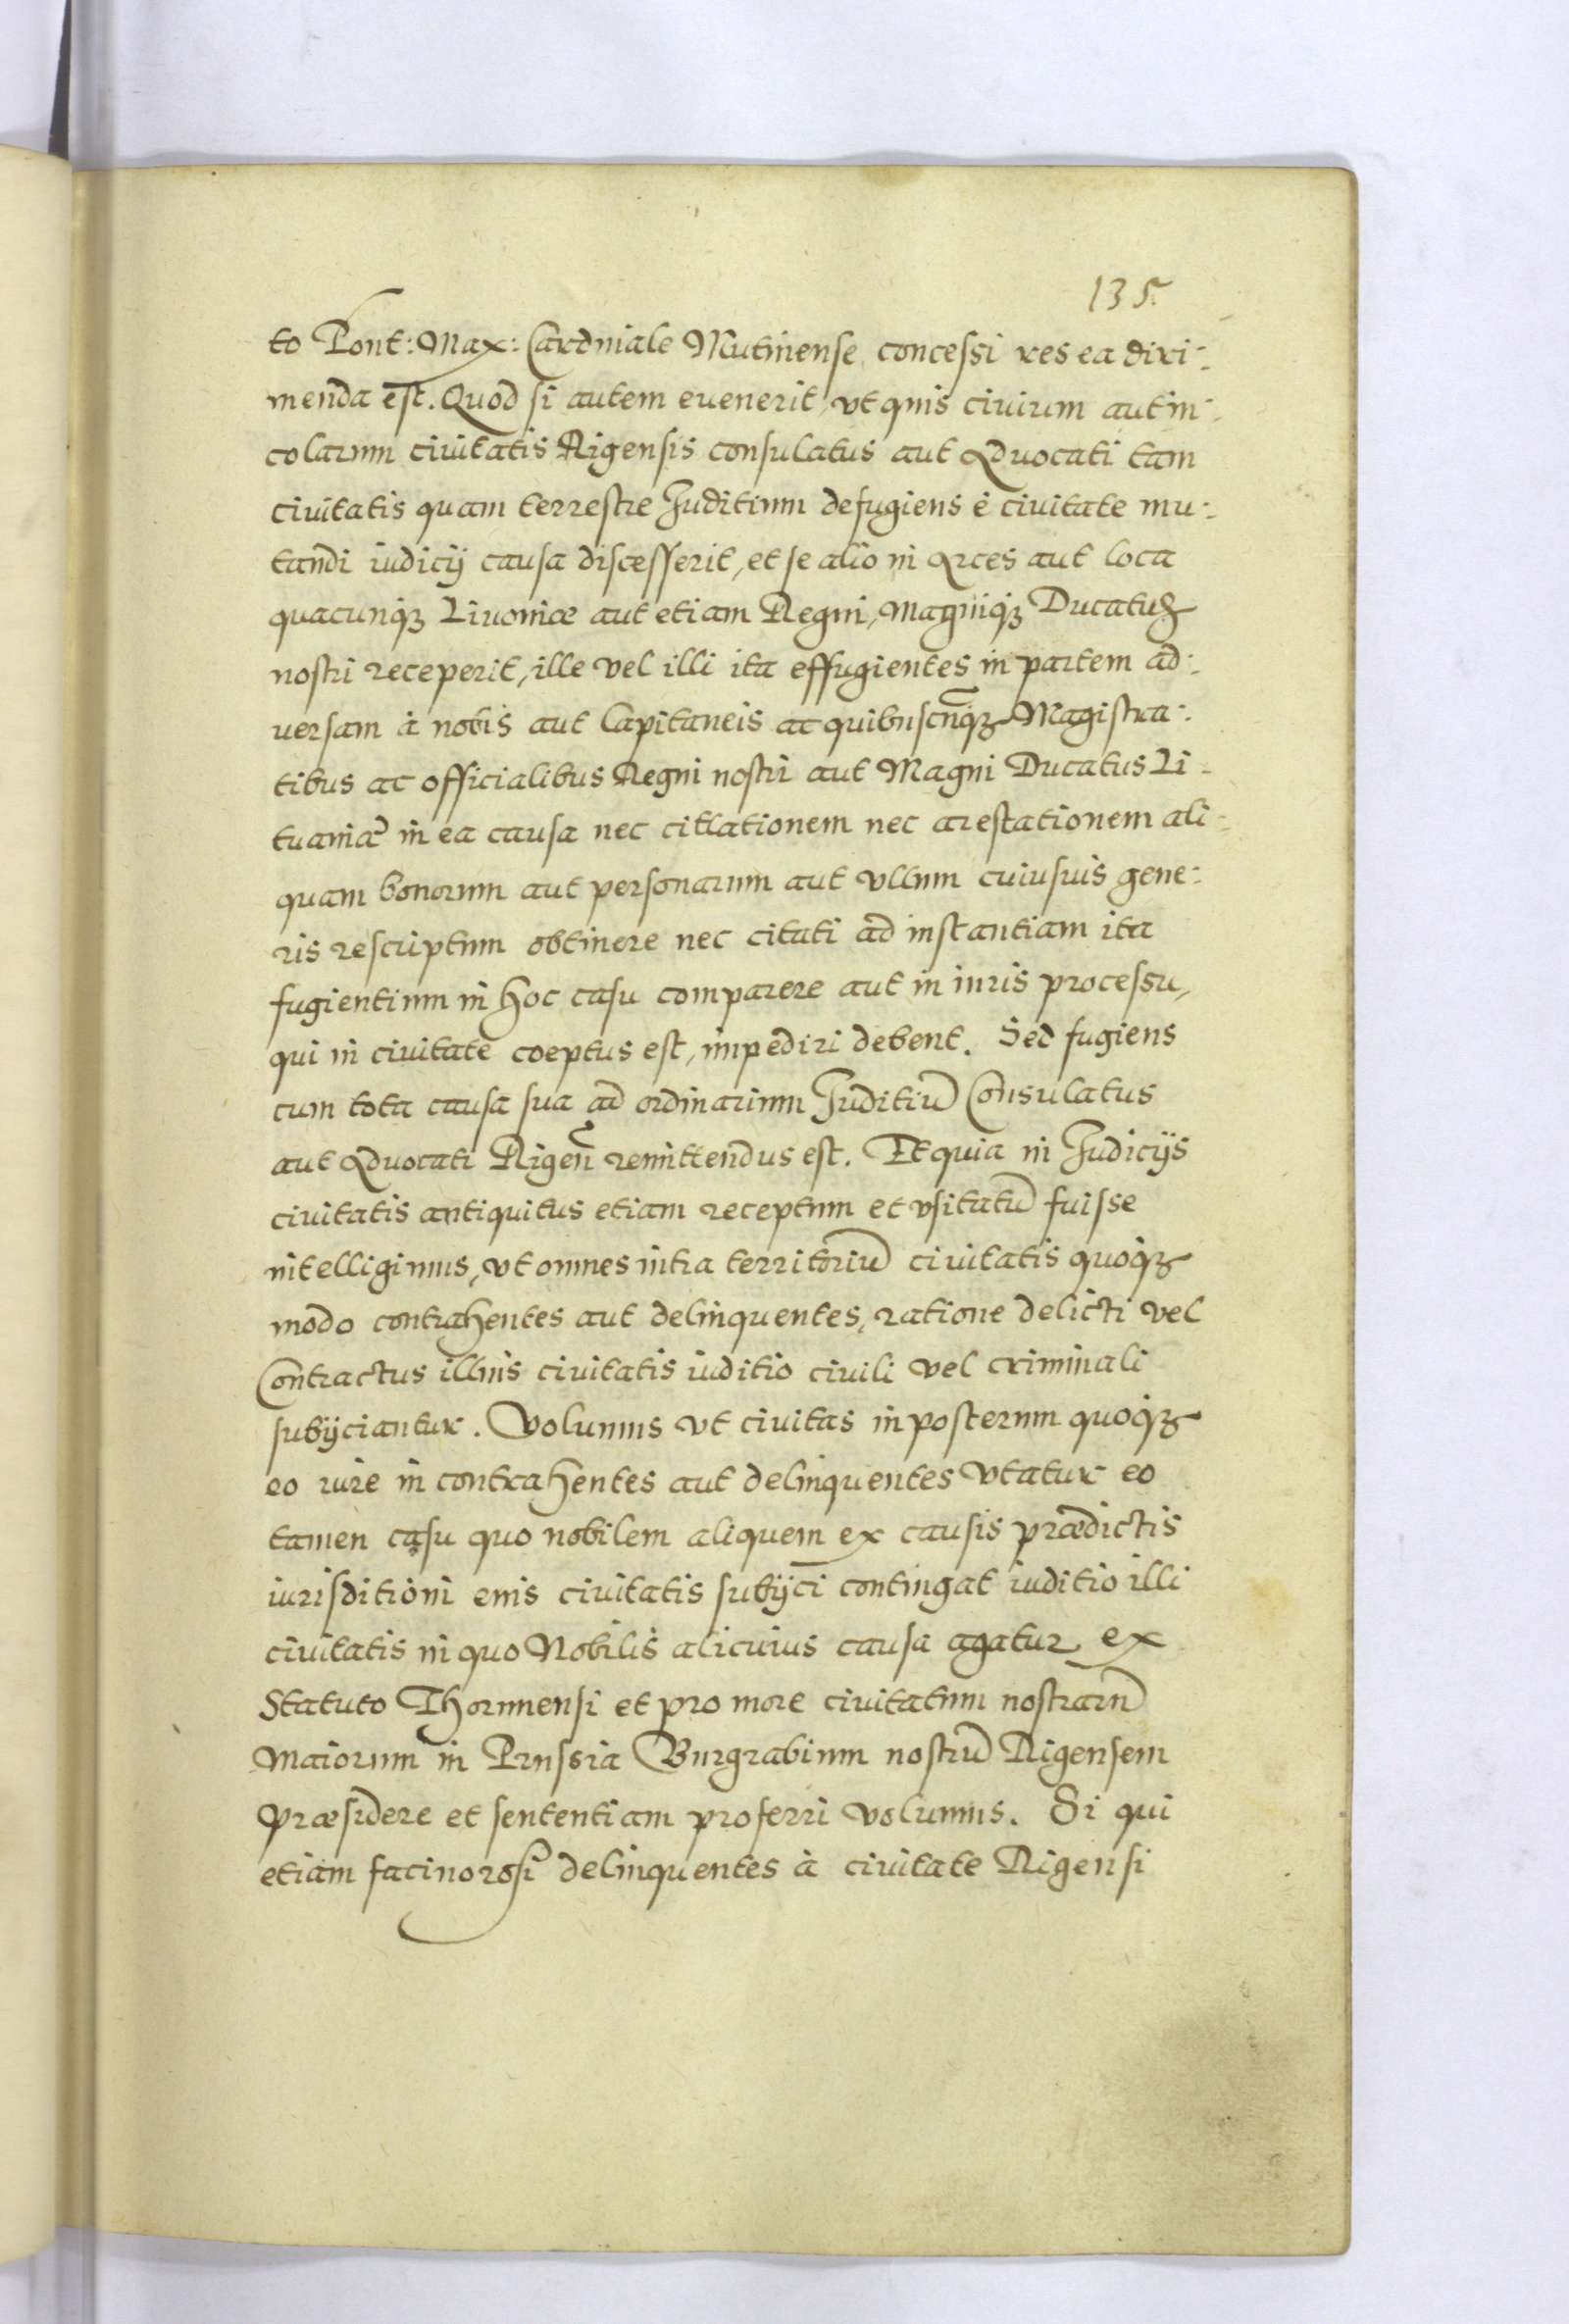 135
to Pont: Max: Cardiniale Mutinense concessi res ea diri-
menda est. Quod si autem euenerit, vt quis ciuium aut in-
colarum ciuitatis Rigensis consulatus aut Aduocati tam
ciuitatis quam terrestre Juditium defugiens è ciuitate mu-
tandi iudicij causa discesserit, et se alio in Arces aut loca
quacunqz Liuoniæ aut etiam Regni, Magniqz Ducatus
nostri receperit, ille vel illi ita effugientes in partem ad-
uersam à nobis aut Capitaneis ac quibuscunqz Magistra-
tibus ac officialibus Regni nostri aut Magni Ducatus Li-
tuaniæ in ea causa nec citlationem nec arestationem ali-
quam bonorum aut personarum aut vllum cuiusuis gene-
ris rescriptum obtinere nec citati ad instantiam ita
fugientium in hoc casu comparere aut in iuris processu,
qui in ciuitate coeptus est, impediri debent. Sed fugiens
cum tota causa sua ad ordinarium Juditiū Consulatus
aut Aduocati Rigen̄ remittendus est. Et quia in Judicijs
ciuitatis antiquitus etiam receptum et vsitatū fuisse
intelligimus, vt omnes intra territoriū ciuitatis quoqz
modo contrahentes aut delinquentes, ratione delicti vel
Contractus illius ciuitatis iuditio ciuili vel criminali
subijciantur. Volumus vt ciuitas in posterum quoqz
eo iure in contrahentes aut delinquentes vtatur eo
tamen casu quo nobilem aliquem ex causis prædictis
iurisditioni eius ciuitatis subijci contingat iuditio illi
ciuitatis in quo Nobilis alicuius causa agatur ex
Statuto Thorunensi et pro more ciuitatum nostrarū
Maiorum in Prussia Burgrabium nostrū Rigensem
Præsidere et sententiam proferri volumus. Si qui
etiam facinorosi delinquentes à ciuitate Rigensi